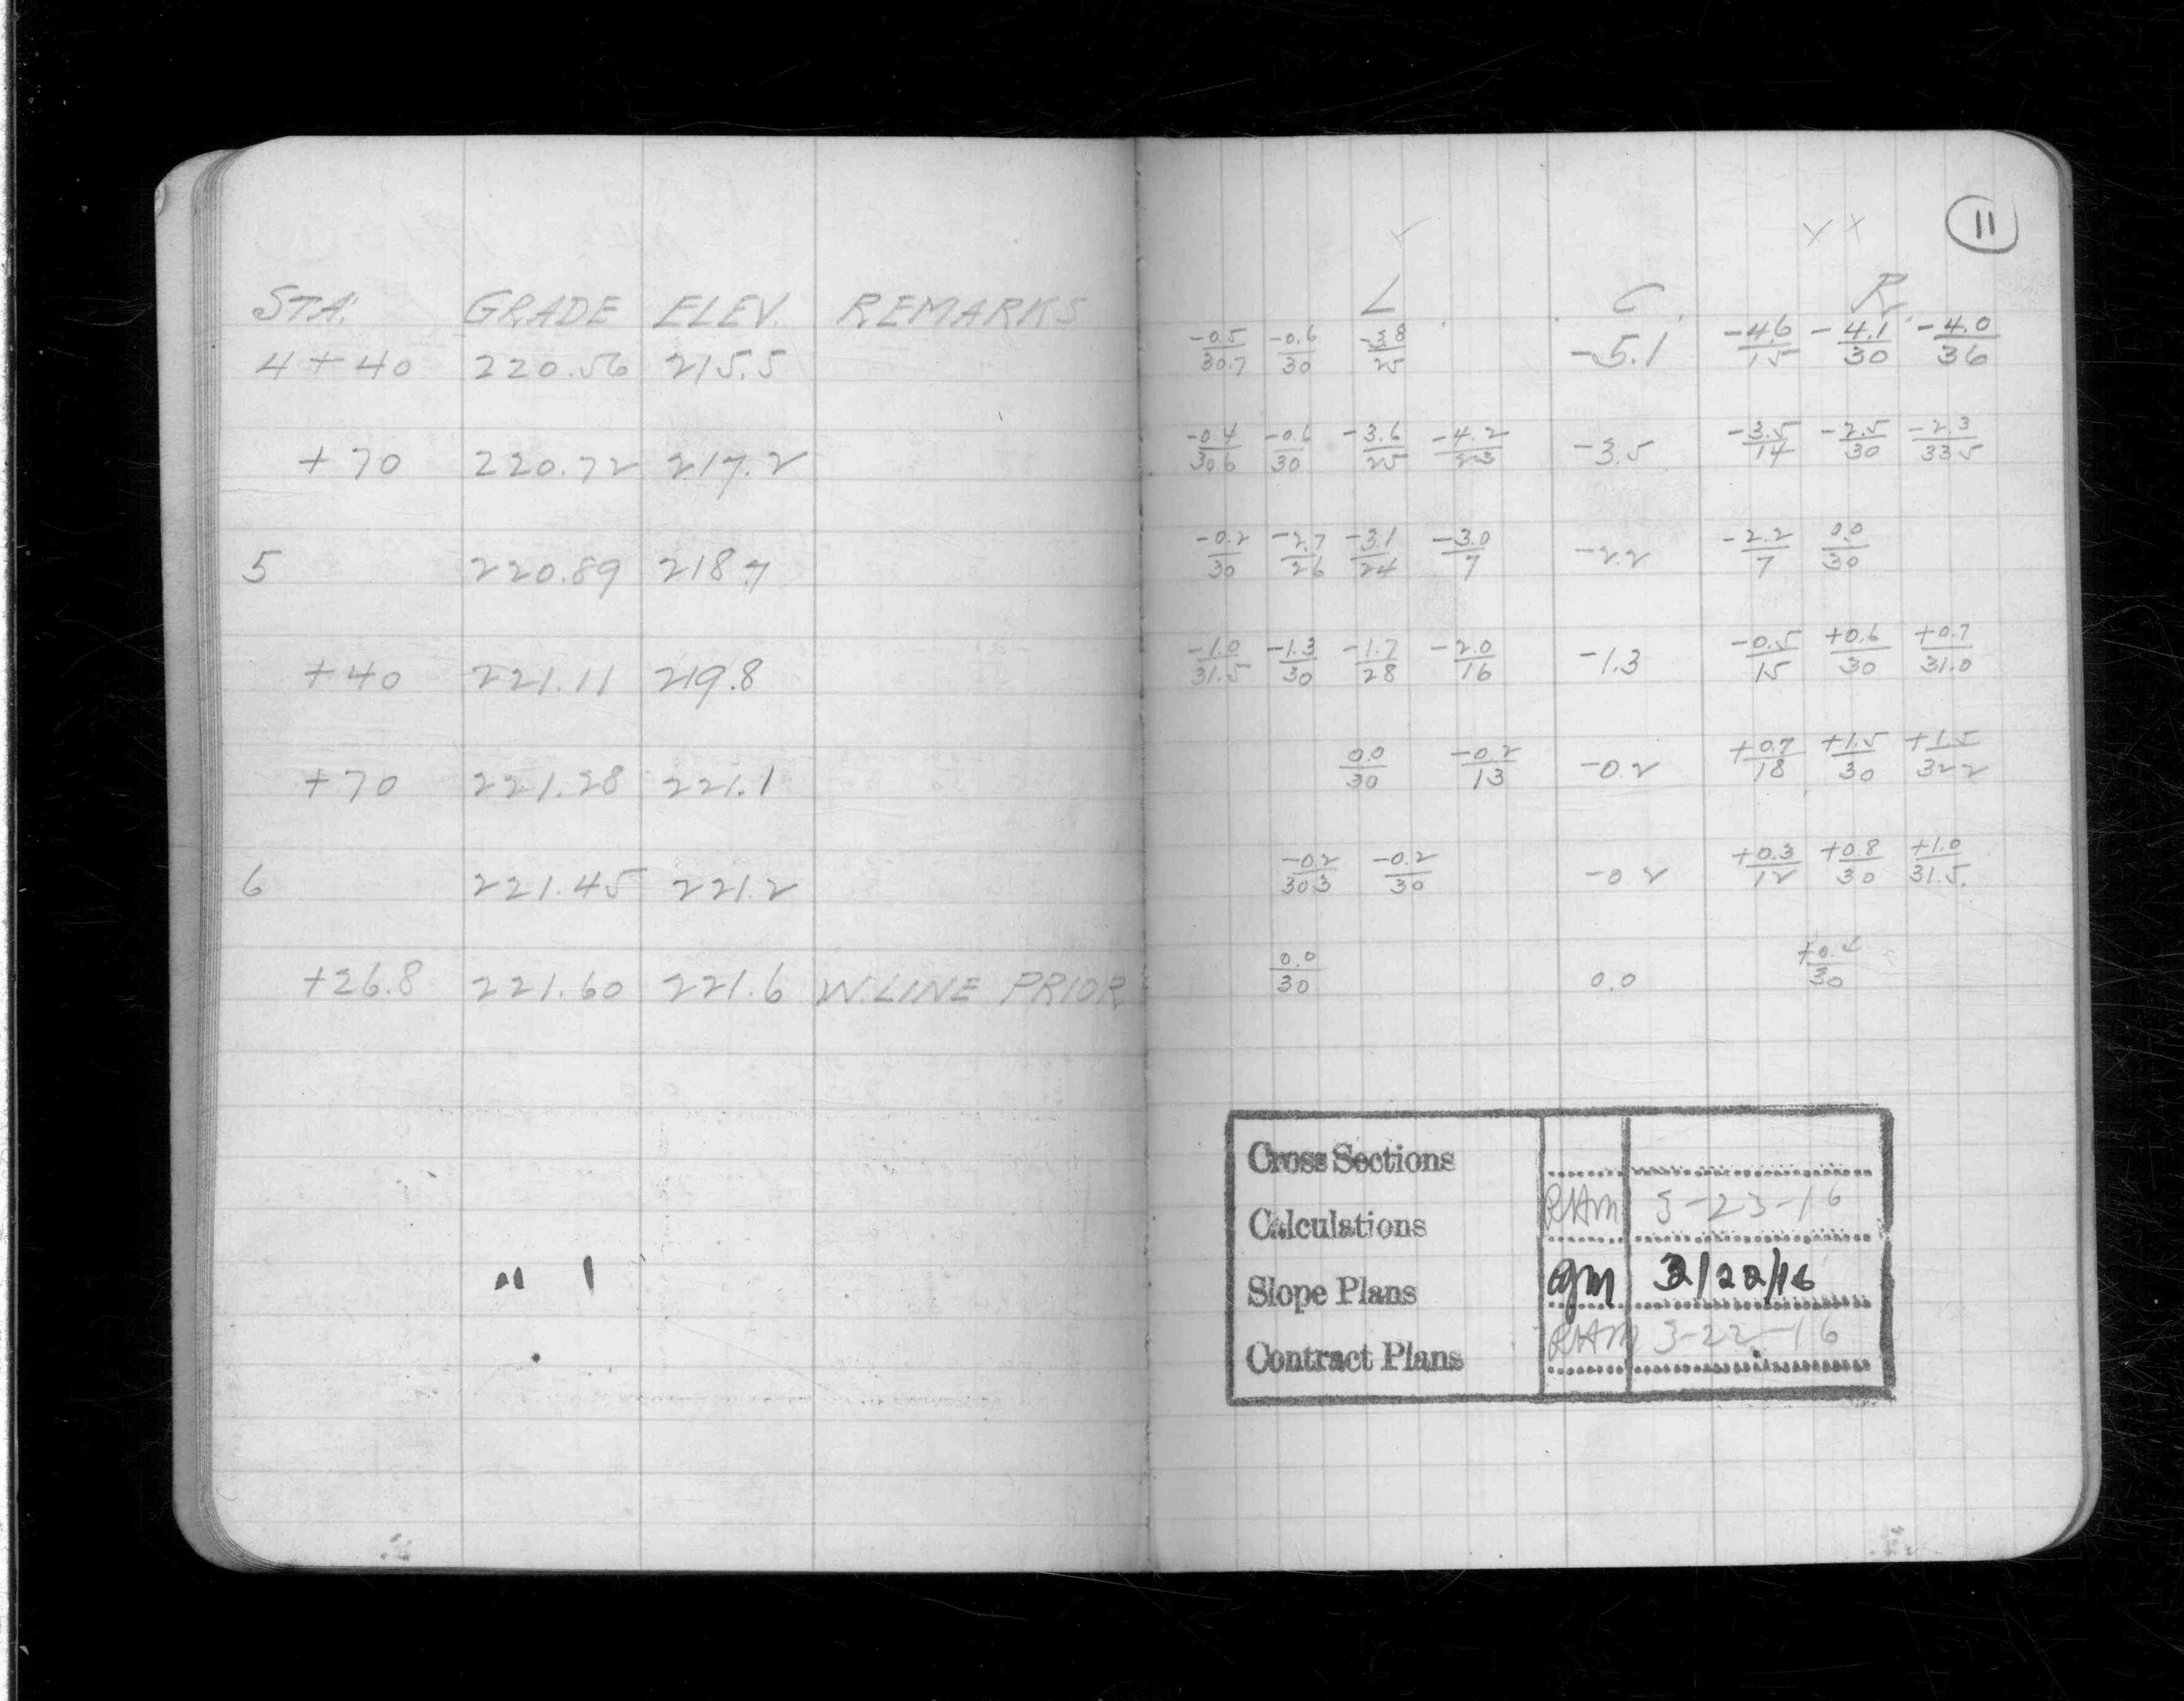 11
STA. GRADE ELEV. REMARKS L C R
4+40 220.56 215.5 -0.5/30.7 -0.6/30 -3.8/25 -5.1 -4.6/15 -4.1/30 -4.0/36
+70 220.72 217.2 -0.4/30.6 -0.6/30 -3.6/25 -4.2/23 -3.5 -3.5/14 -2.5/30 -2.3/33.5
5 220.89 218.7 -0.2/30 -2.7/26 -3.1/24 -3.0/7 -2.2 -2.2/7 0.0/30
+40 221.11 219.8 -1.0/31.5 -1.3/30 -1.7/28 -2.0/16 -1.3 -0.5/15 +0.6/30 +0.7/31.0
+70 221.28 221.1 0.0/30 -0.2/13 -0.2 +0.7/18 +1.5/30 +1.5/32.2
6 221.45 221.2 -0.2/30.3 -0.2/30 -0.2 +0.3/12 +0.8/30 +1.0/31.5
+26.8 221.60 221.6 W.LINE PRIOR 0.0/30 0.0 +0.4/30
Cross Sections
Calculations RHM 3-23-16
Slope Plans 3/22/16
Contract Plans RHM 3-22-16